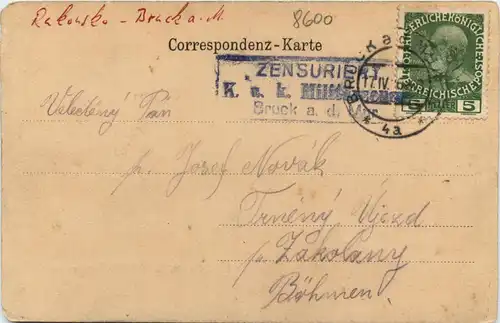 Rakousko - Bruck a. M.
8600
Correspondenz-Karte
ZENSURIERT
K. u. k. Militär
Bruck a. d. M
BRUCK a
17. IV
* 4a *
KAISERLICHEKÖNIGLICHE
ÖSTERREICHISCHE
5 HELLER 5
Velectěný Pán
p. Josef Novák
Trněný Újezd
p. Zákolany
Böhmen.